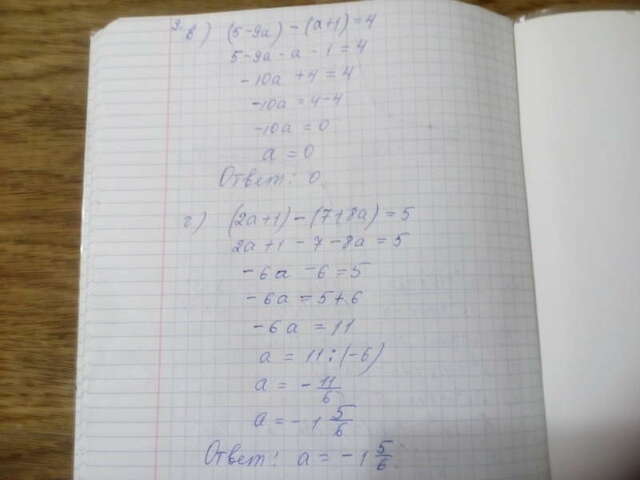 9. в) (5-9a) - (a+1) = 4
5-9a - a - 1 = 4
-10a + 4 = 4
-10a = 4-4
-10a = 0
a = 0
Ответ: 0.
г) (2a+1) - (7+8a) = 5
2a+1 - 7 - 8a = 5
-6a -6 = 5
-6a = 5+6
-6a = 11
a = 11 : (-6)
a = - 11/6
a = -1 5/6
Ответ: a = -1 5/6.